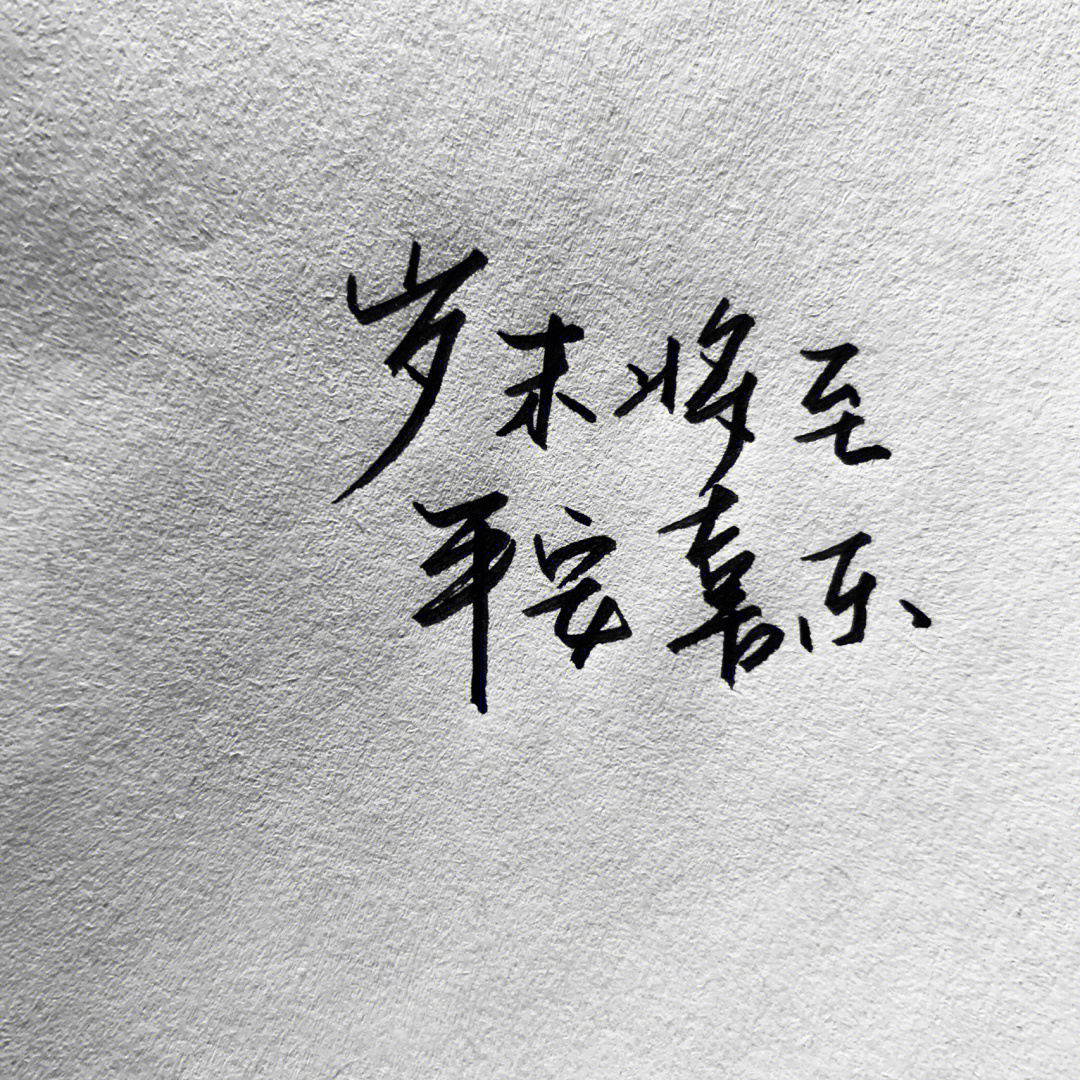 岁末将至
平安喜乐